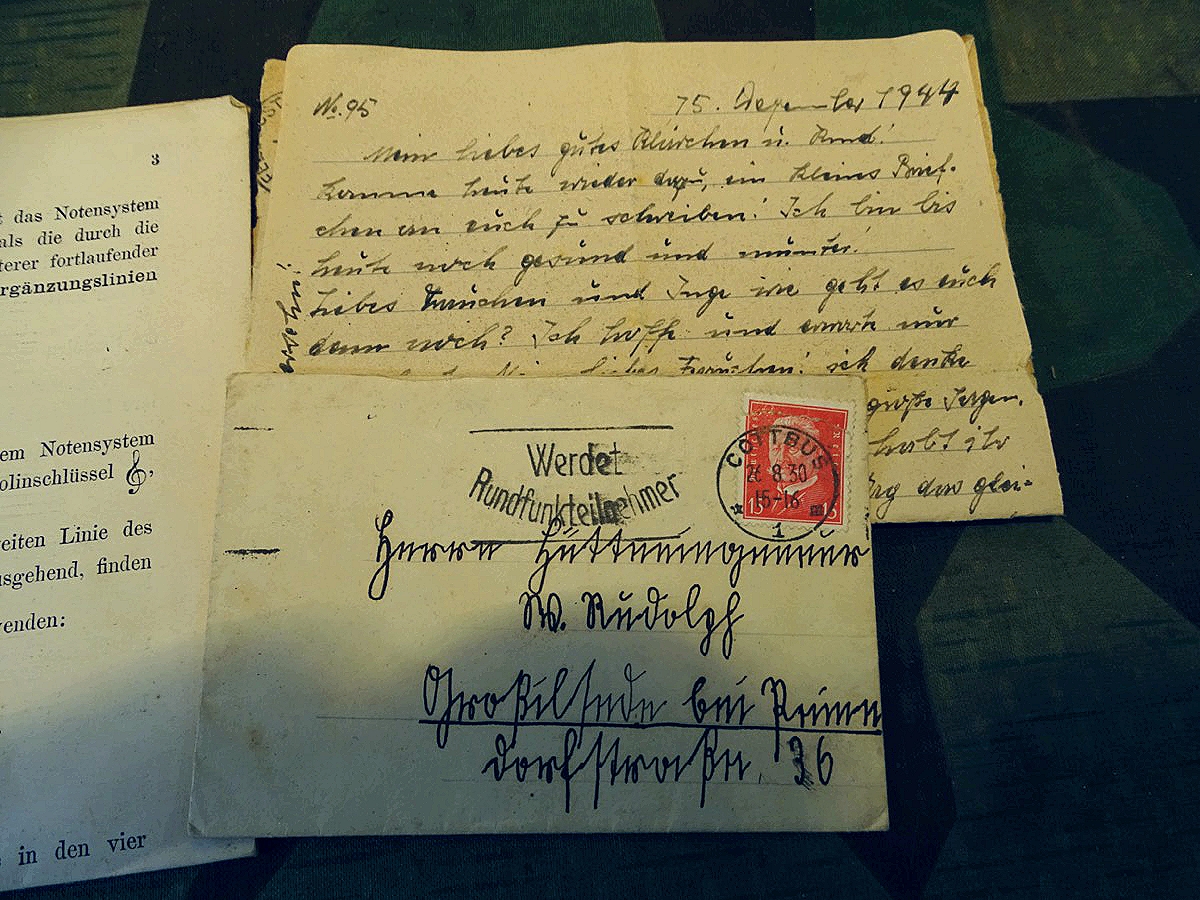 3
das Notensystem
als die durch die
terer fortlaufender
rgänzungslinien
em Notensystem
olinschlüssel
eiten Linie des
usgehend, finden
enden:
in den vier
No. 95
15. Dezember 1944
Mein liebes gutes Klärchen u. Kind!
Komme heute wieder dazu, ein kleines Brief-
chen an euch zu schreiben! Ich bin bis
heute noch gesund und munter!
Liebes Frauchen und Inge wie geht es euch
denn noch? Ich hoffe und erwarte nur
liebes Frauchen! ich denke
große Sorgen,
habt ihr
das glei-
Werdet
Rundfunkteilnehmer
COTTBUS
26.8.30
15-16
1
15 15
Herrn Hütteningenieur
W. Rudolph
Großilsede bei Peine
Dorfstraße 36